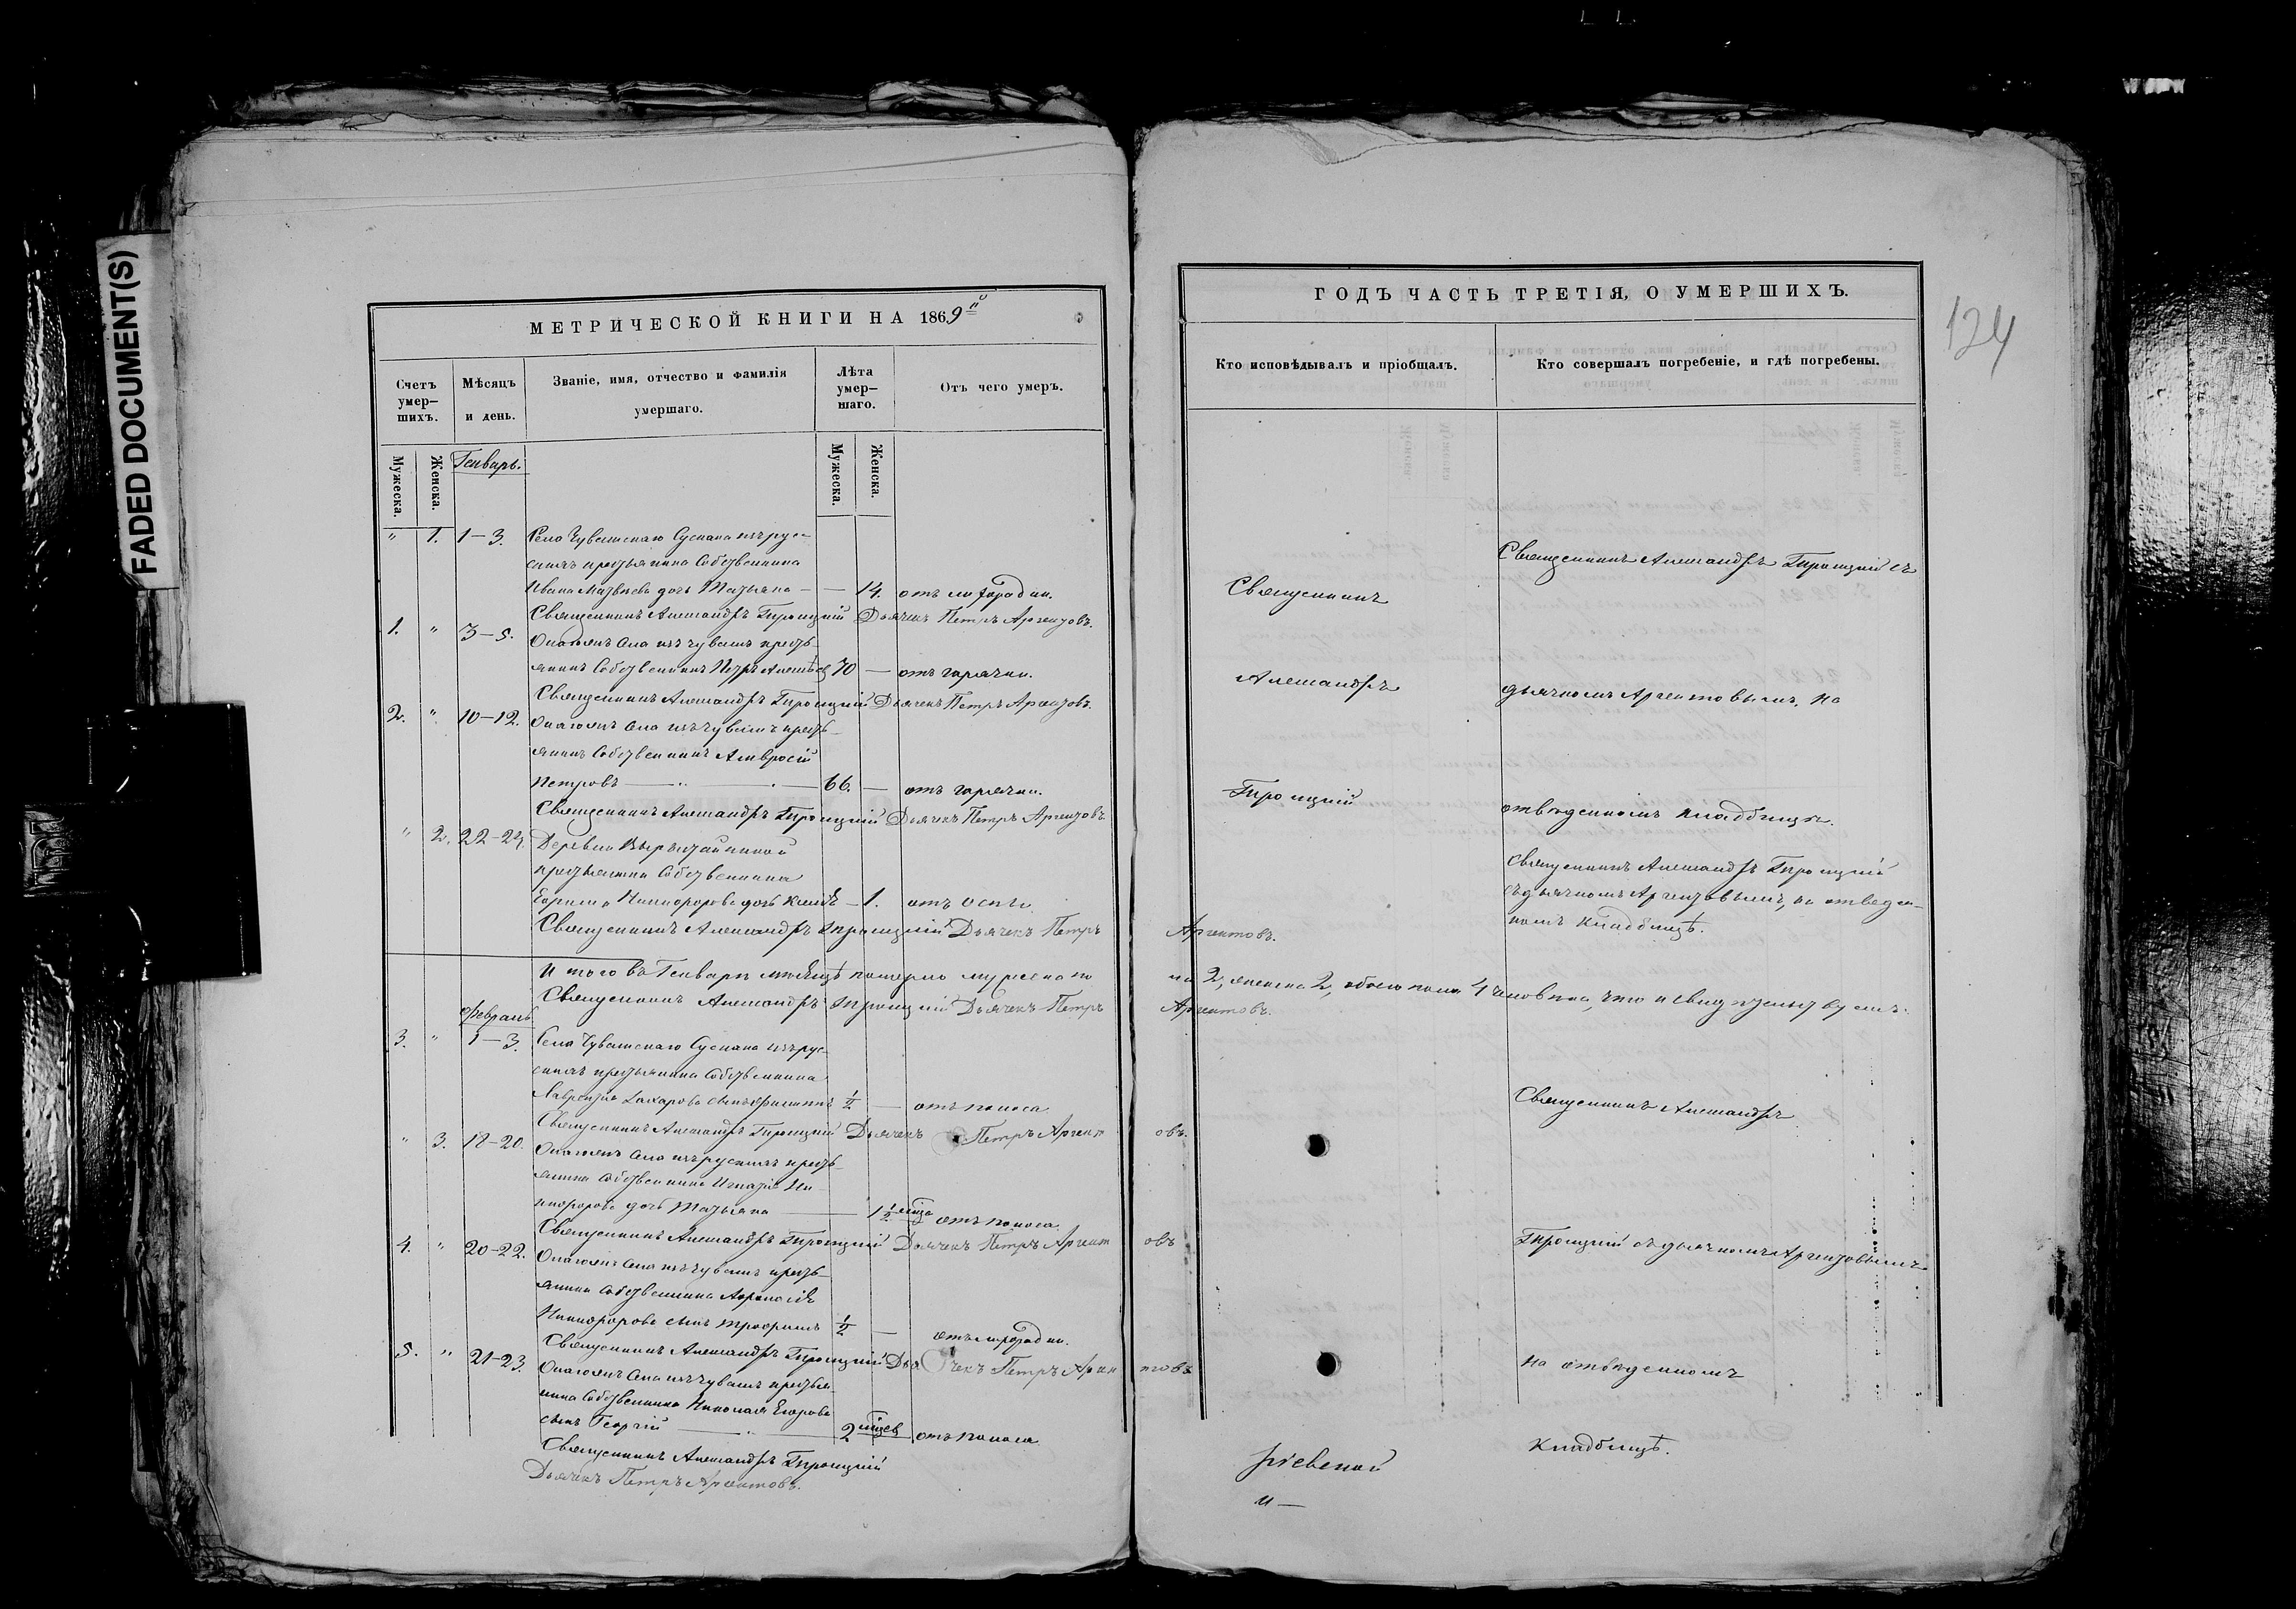 FADED DOCUMENT(S)
МЕТРИЧЕСКОЙ КНИГИ НА 1869й
Счетъ умер-шихъ.
Мѣсяцъ и день.
Званіе, имя, отчество и фамилія умершаго.
Лѣта умер-шаго.
Отъ чего умеръ.
Мужеска.
Женска.
Генварь.
Мужеска.
Женска.
" 1. 1–3. Села Чувашскаго Сускана изъ рус-
скихъ крестьянина Собственника
Ивана Матвѣева дочь Татьяна — — 14. отъ лихорадки.
Священникъ Александръ Троицкій Дьячекъ Петръ Аргентовъ.
1. " 3–5. Онагожъ Села изъ чувашъ кресть-
янинъ Собственникъ Петръ 70 — отъ горячки.
Священникъ Александръ Троицкій Дьячекъ Петръ Аргентовъ.
2. " 10–12. Онагожъ Села изъ чувашъ кресть-
янинъ Собственникъ Амвросій
Петровъ — 66. — отъ горячки.
Священникъ Александръ Троицкій Дьячекъ Петръ Аргентовъ
" 2. 22–24. Деревни
крестьянина Собственника
Никифорова дочь — 1. отъ оспы
Священникъ Александръ Троицкій Дьячекъ Петръ Аргентовъ.
Итого въ Генварѣ мѣсяцѣ померло мужска по-
ла 2, женска 2, обоего пола 4 человека, что и свидѣтельствуемъ.
Священникъ Александръ Троицкій Дьячекъ Петръ Аргентовъ.
Февраль
3. " 1–3. Села Чувашскаго Сускана изъ рус-
скихъ крестьянина Собственника
Лаврентія Захарова сынъ Филиппъ ½ — отъ поноса
Священникъ Александръ Троицкій Дьячекъ Петръ Аргентовъ.
" 3. 18–20. Онагожъ Села изъ русскихъ кресть-
янина Собственника Игнатія Ни-
кифорова дочь Татьяна — 1½ отъ поноса.
Священникъ Александръ Троицкій Дьячекъ Петръ Аргентовъ
4. " 20–22. Онагожъ Села изъ чувашъ кресть-
янина Собственника
Никифорова сынъ Трофимъ ½ — отъ лихорадки.
Священникъ Александръ Троицкій Дьячекъ Петръ Аргентовъ
5. " 21–23. Онагожъ Села изъ чувашъ крестья-
нина Собственника Николая Егорова
сынъ Георгій — 2 отъ поноса
Священникъ Александръ Троицкій
Дьячекъ Петръ Аргентовъ.
ГОДЪ ЧАСТЬ ТРЕТІЯ, О УМЕРШИХЪ.
124
Кто исповѣдывалъ и пріобщалъ.
Кто совершалъ погребеніе, и гдѣ погребены.
Священникъ
Александръ
Троицкій
Священникъ Александръ Троицкій съ
дьячкомъ Аргентовымъ, на
отведенномъ кладбищѣ.
Священникъ Александръ Троицкій
съ дьячкомъ Аргентовымъ, на отведен-
номъ кладбищѣ.
Священникъ Александръ
Троицкій съ дьячкомъ Аргентовымъ
на отведенномъ
кладбищѣ.